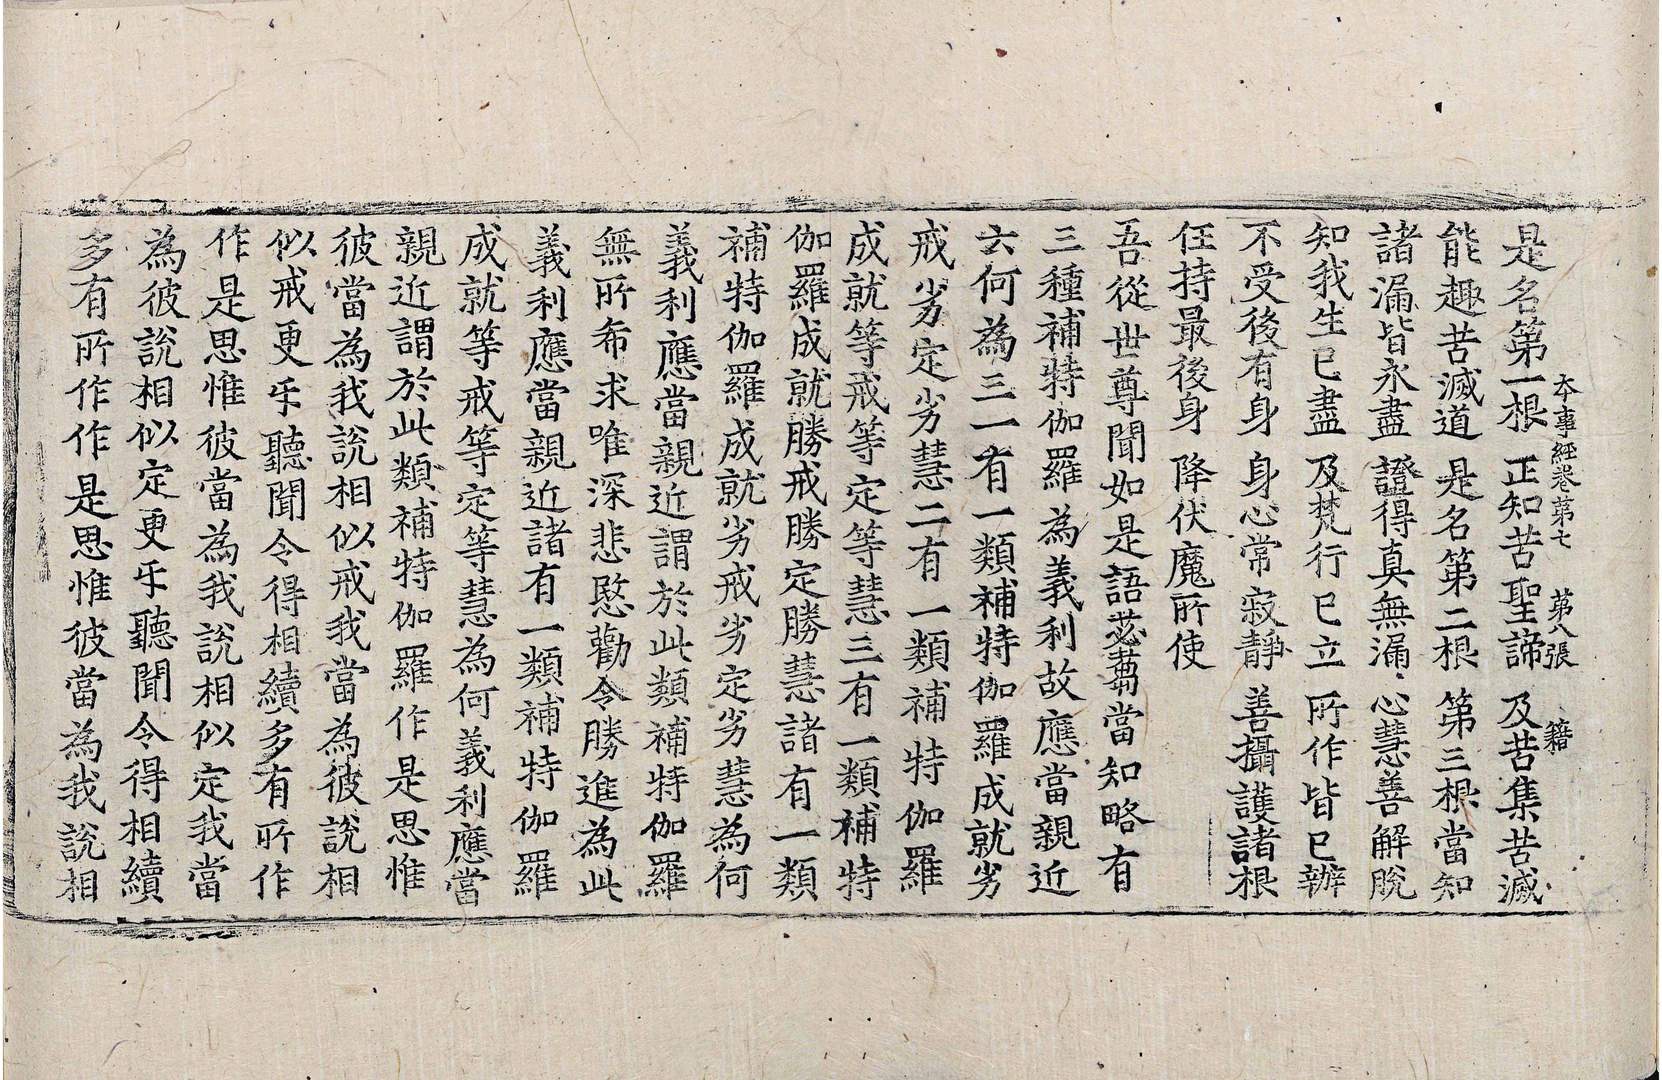 本事經卷第七 第八張 籍
是名第一根 正知苦聖諦 及苦集苦滅
能趣苦滅道 是名第二根 第三根當知
諸漏皆永盡 證得真無漏 心慧善解脫
知我生已盡 及梵行已立 所作皆已辦
不受後有身 身心常寂靜 善攝護諸根
任持最後身 降伏魔所使
吾從世尊聞如是語苾蒭當知略有
三種補特伽羅為義利故應當親近
云何為三一有一類補特伽羅成就劣
戒劣定劣慧二有一類補特伽羅
成就等戒等定等慧三有一類補特
伽羅成就勝戒勝定勝慧諸有一類
補特伽羅成就劣戒劣定劣慧為何
義利應當親近謂於此類補特伽羅
無所希求唯深悲愍勸令勝進為此
義利應當親近諸有一類補特伽羅
成就等戒等定等慧為何義利應當
親近謂於此類補特伽羅作是思惟
彼當為我說相似戒我當為彼說相
似戒更乐聽聞令得相續多有所作
作是思惟彼當為我說相似定我當
為彼說相似定更乐聽聞令得相續
多有所作作是思惟彼當為我說相